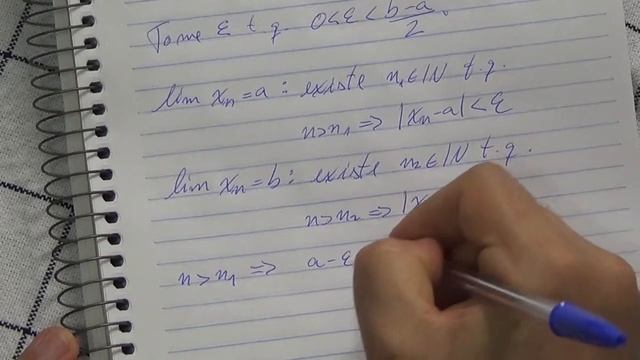 Tome ε t.q. 0<ε<(b-a)/2.
lim xn=a : existe n1∈IN t.q.
n>n1 => |xn-a|<ε
lim xn=b : existe n2∈IN t.q.
n>n2 => |x
n>n1 => a-ε